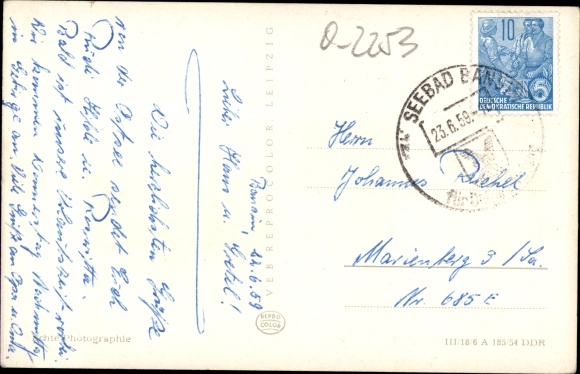 Bansin, 22.6.59
Liebe Hans u. Gretel!
Die herzlichsten Grüße
von der Ostsee sendet Euch
Rudi, Hilde u. Roswitha.
Bald ist unsere Urlaubszeit vorbei.
Wir kommen Donnerstag Nachmittag
in Gebirge an. Viele Grüße an Opa u. Oma.
Echte Photographie
VEB REPROCOLOR LEIPZIG
REPRO
COLOR
O-2253
SEEBAD BANSIN
23.6.59
10
5
DEUTSCHE
DEMOKRATISCHE REPUBLIK
Herrn
Johannes
Marienberg 3 /Sa.
Nr. 685 E
III/18/6 A 185/54 DDR